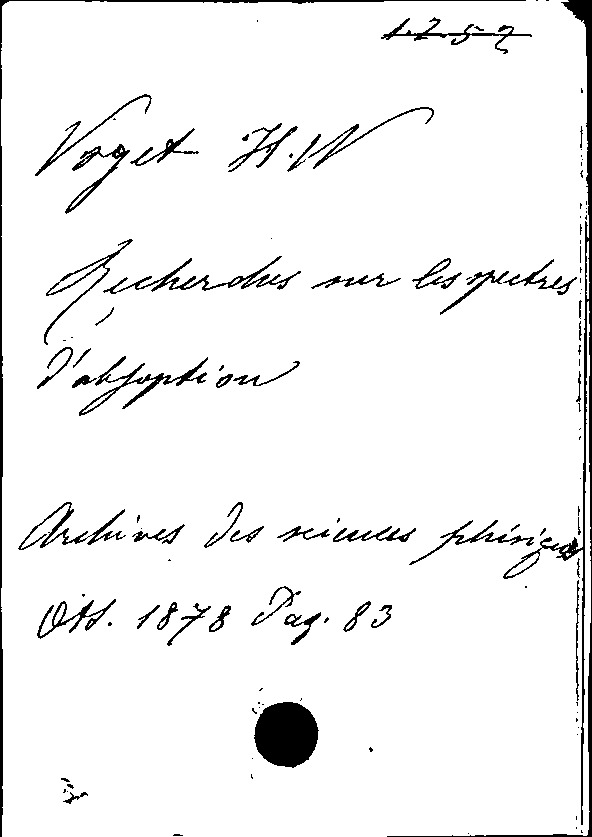 1.2.5 2
Voget H.W
Recherches sur les spectres
d'absoption
Archives des sciences phisiques
Ott. 1878 Pag. 83